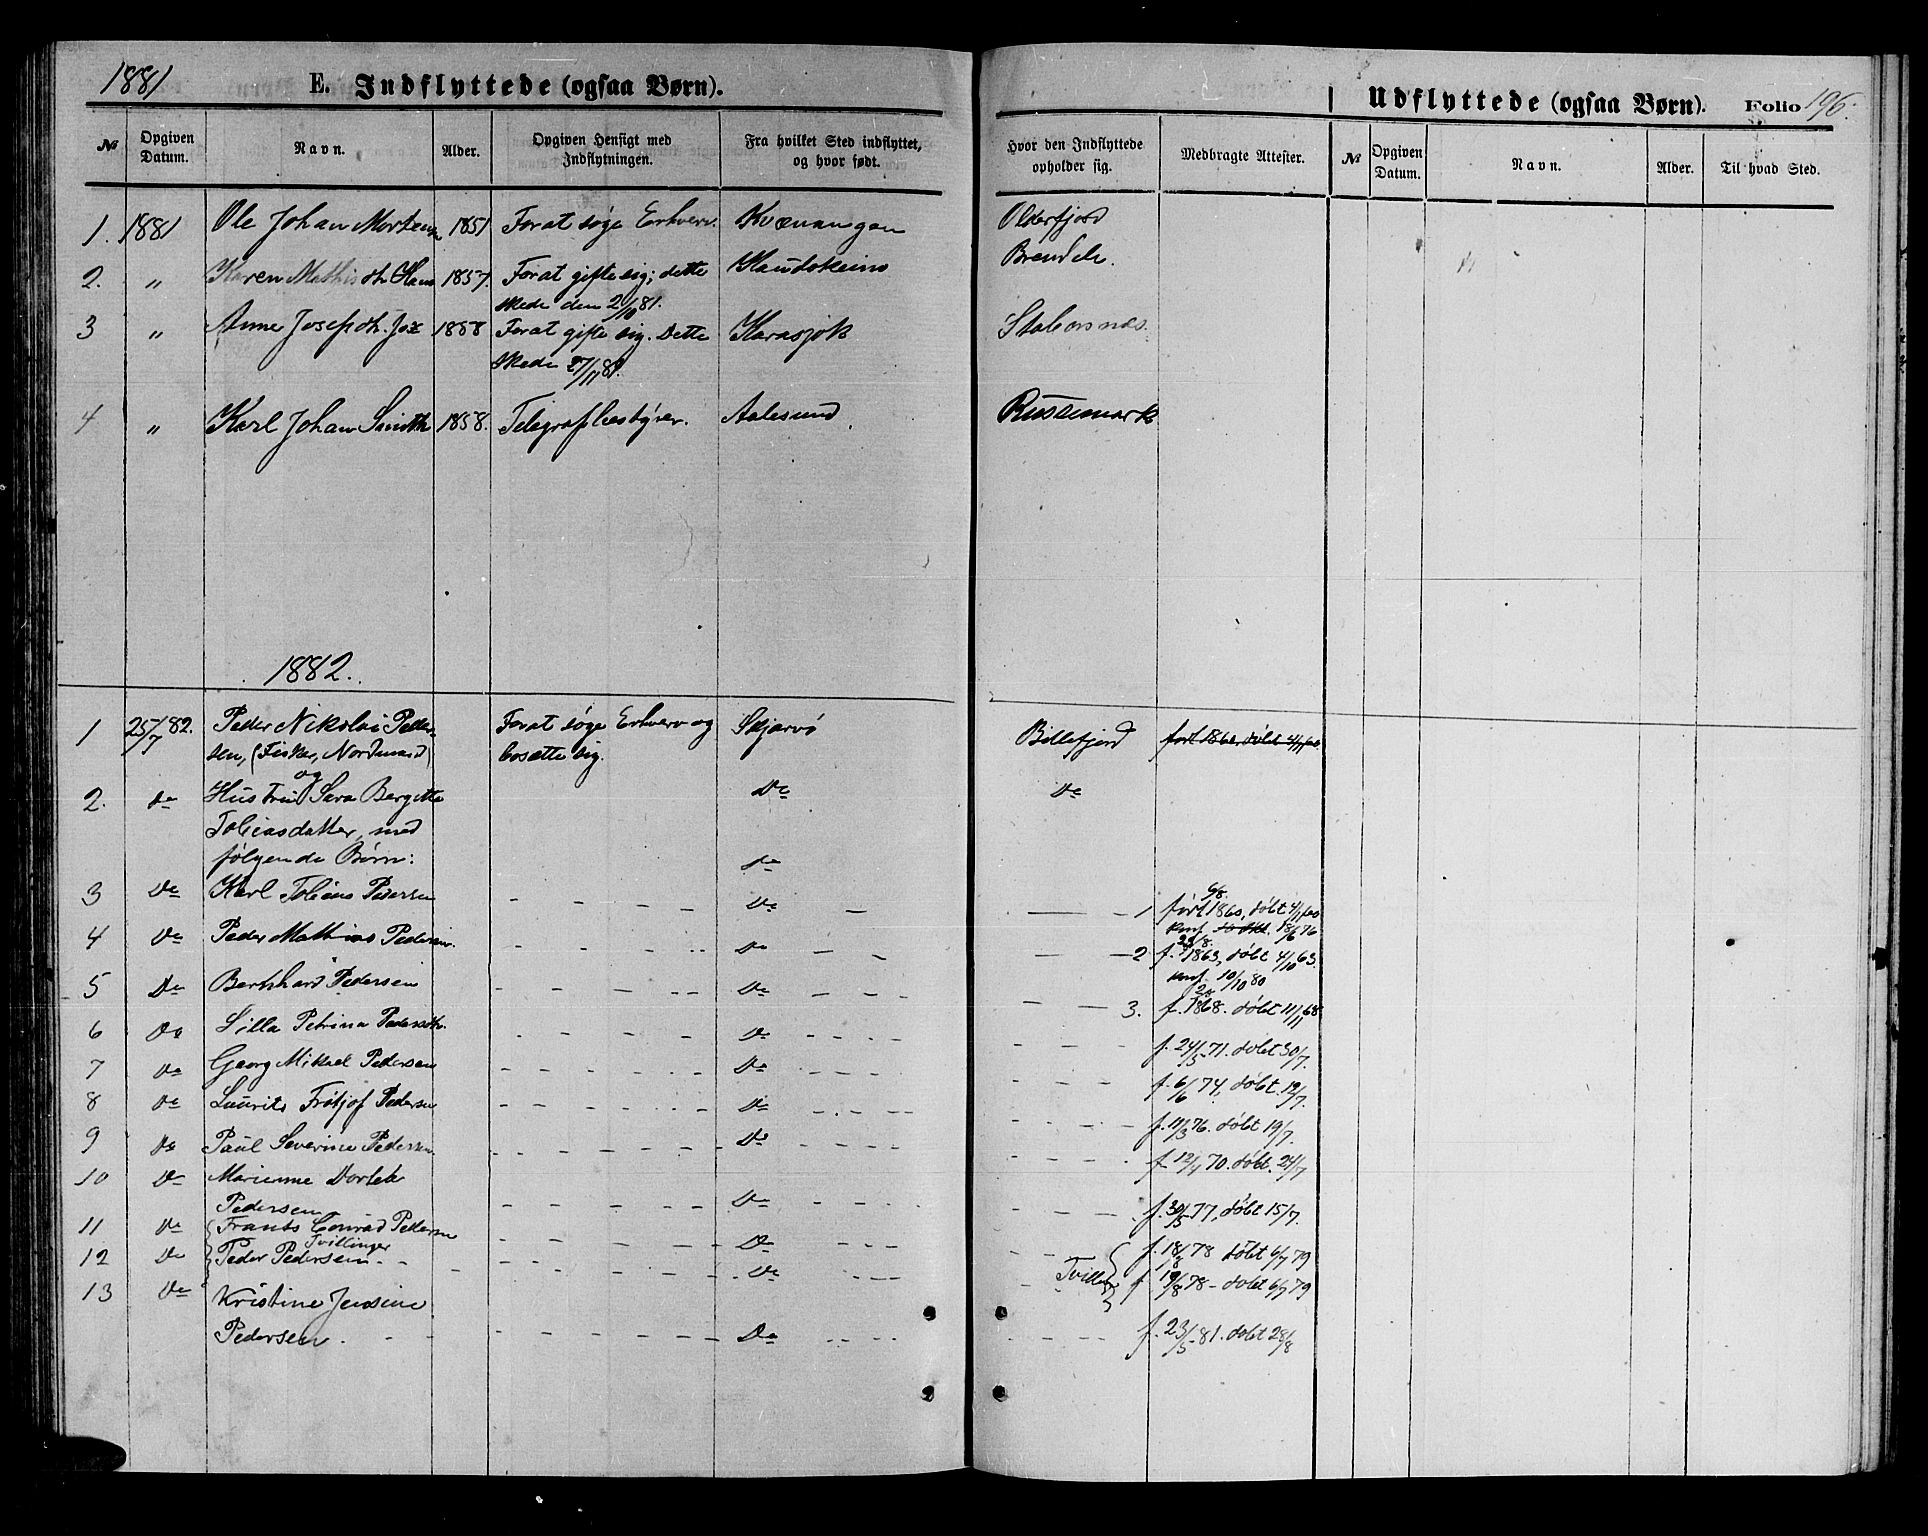 1881 E. Indflyttede (ogsaa Børn). Udflyttede (ogsaa Børn). Folio 196.
№ Opgiven Datum. Navn. Alder. Opgiven Hensigt med Indflytningen. Fra hvilket Sted indflyttet, og hvor født. Hvor den Indflyttede opholder sig. Medbragte Attester. № Opgiven Datum. Navn. Alder. Til hvad Sted.
1. 1881 Ole Johan Mortens 1851 For at søge Erhverv. Kvænangen Olderfjord
2. " Karen Mathis dtr Hans 1857. For at gifte sig; dette Kautokeino Brendelv.
skede den 2/10 81.
3 " Anne Josep dtr. Jox 1858 For at gifte sig. Dette Karasjok Stabersnes.
skede 27/11 81.
4 " Karl Johan Smith 1858. Telegrafbestyrer. Aalesund Russemark
1882.
1 25/7 82. Peder Nikolai Peder- For at søge Erhverv og Skjærvø Billefjord født 1860, døbt 4/11 60.
sen, (Fisker, Nordmand) bosætte sig.
og
2. do Hustru Sara Bergitte Do Do
Tobiasdatter, med
følgende Børn: do
3 Do Karl Tobias Pedersen Do 1 født 6/8. 1860, døbt 4/11 60
konf. 18/6 76
4 Do Peder Mathias Pedersen. Do 2 f. 23/8. 1863, døbt 4/10 63.
konf. 10/10 80
5 Do Bernhard Pedersen Do 3. f. 1868. døbt 11/11 68
6 Do Silla Petrina Pedersdtr. Do f. 24/5 71. døbt 30/7.
7 Do Georg Mikael Pedersen Do f. 6/6 74, døbt. 12/7.
8 Do Laurits Fritjof Pedersen Do f. 11/3 76. døbt 19/7.
9 Do Paul Severine Pedersen Do f. 12/4 70. døbt. 24/7
10 Do Marienne Dorteb
Pedersen Do f. 30/5 77, døbt 15/7.
11 Do Frants Conrad Pedersen Do f. 18/8 78 døbt 6/7 79
Tvillinger
12 Do Peder Pedersen. Do f 19/8 78 - døbt 6/7 79
13 Do Kristine Jensine
Pedersen. Do f. 23/5 81. døbt 28/8